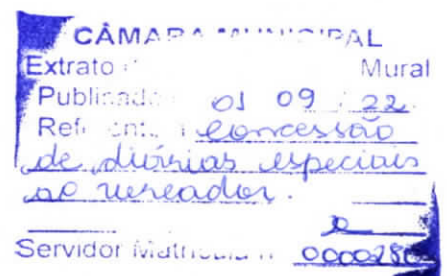 CÂMARA MUNICIPAL
Extrato Mural
Publicado 01 09 22
Referente a concessão
de diárias especiais
ao vereador.
Servidor Matricula n 0000280